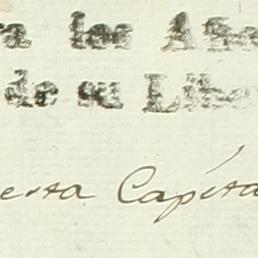 ra los Año
de su Libe
esta Capita